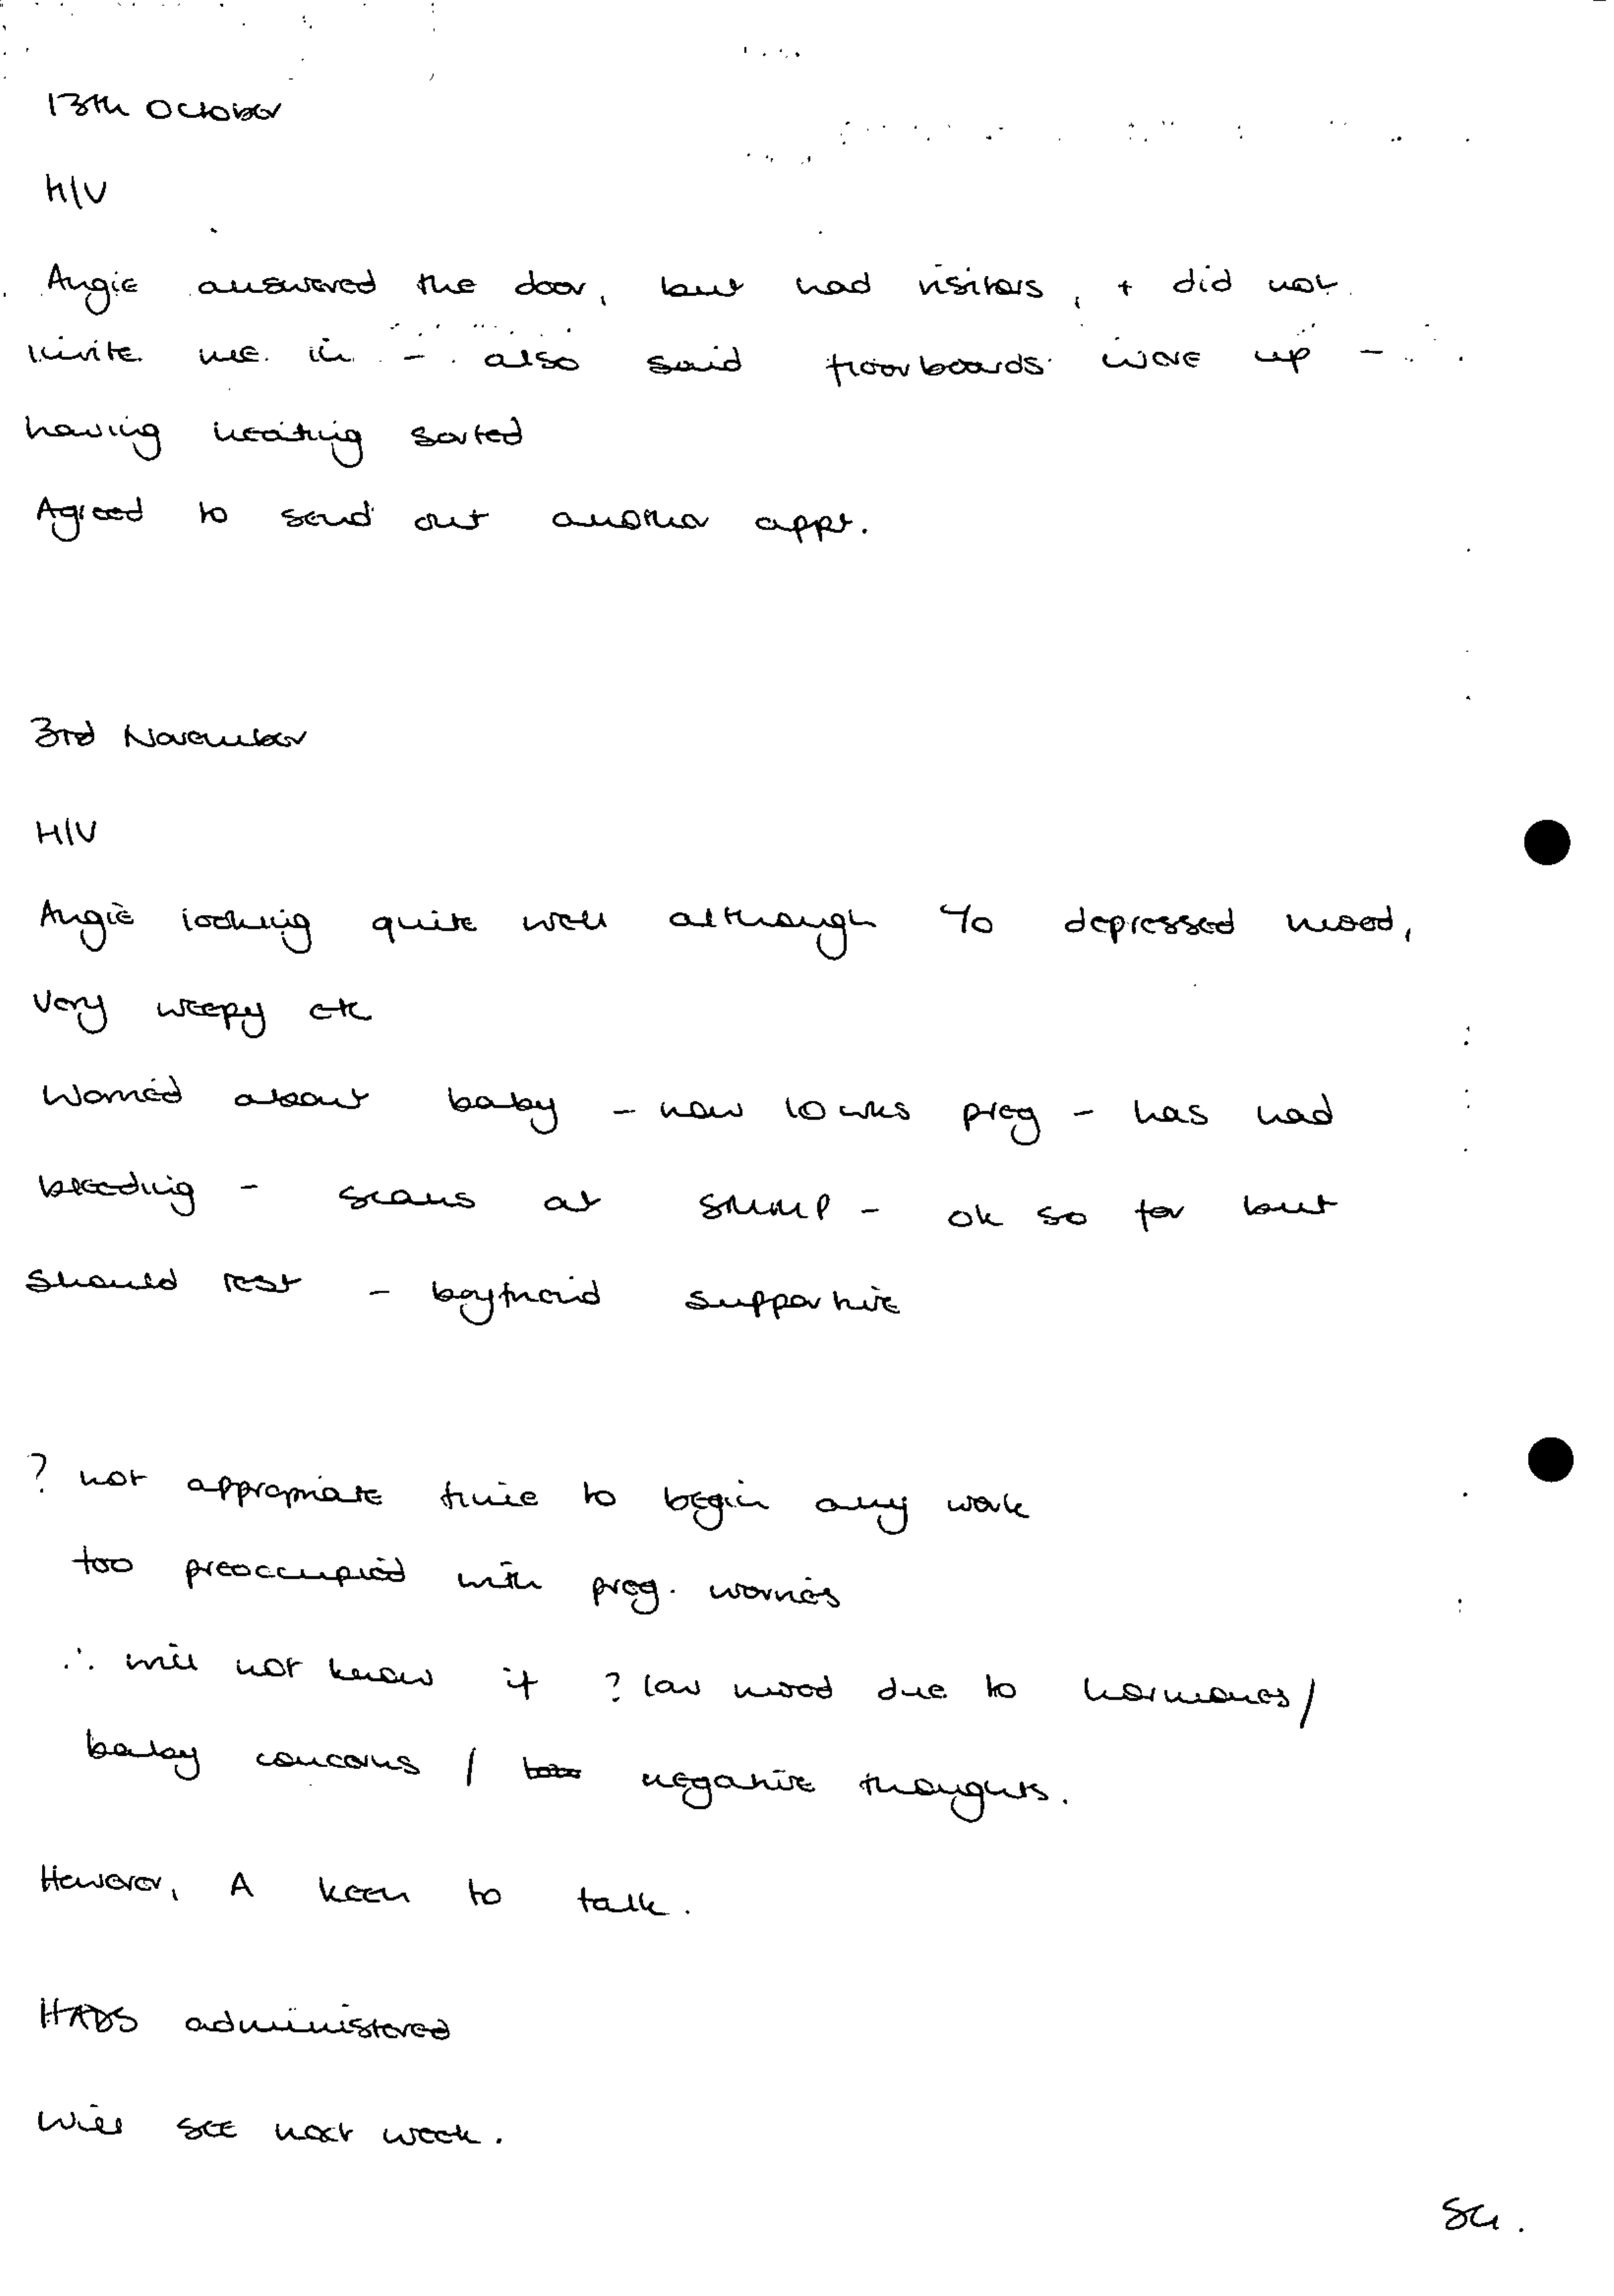 13th October
H/V
Angie answered the door, but had visitors, + did not
invite me in - also said floorboards were up -
having heating sorted
Agreed to send out another appt.
3rd November
H/V
Angie looking quite well although c/o depressed mood,
very weepy etc
Worried about baby - now 10 wks preg - has had
bleeding - scans at - ok so far but
should rest - boyfriend supportive
? not appropriate time to begin any work
too preoccupied with preg. worries
∴ will not know if ? low mood due to hormones/
baby concerns / negative thoughts.
However, A keen to talk.
HADS administered
Will see next week.